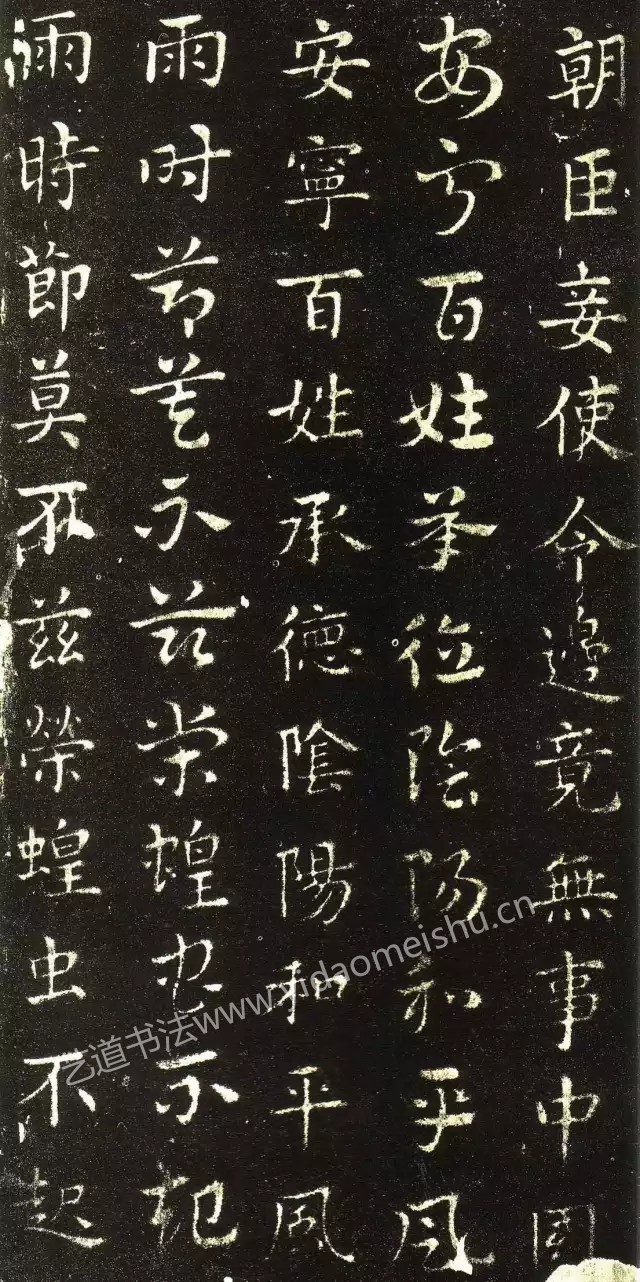 朝臣妾使令邊竟無事中國
安寧百姓承德陰陽和平風
安寧百姓承德陰陽和平風
雨时節莫不茲榮蝗虫不起
雨時節莫不茲榮蝗虫不起
艺道书法www.yidaomeishu.cn